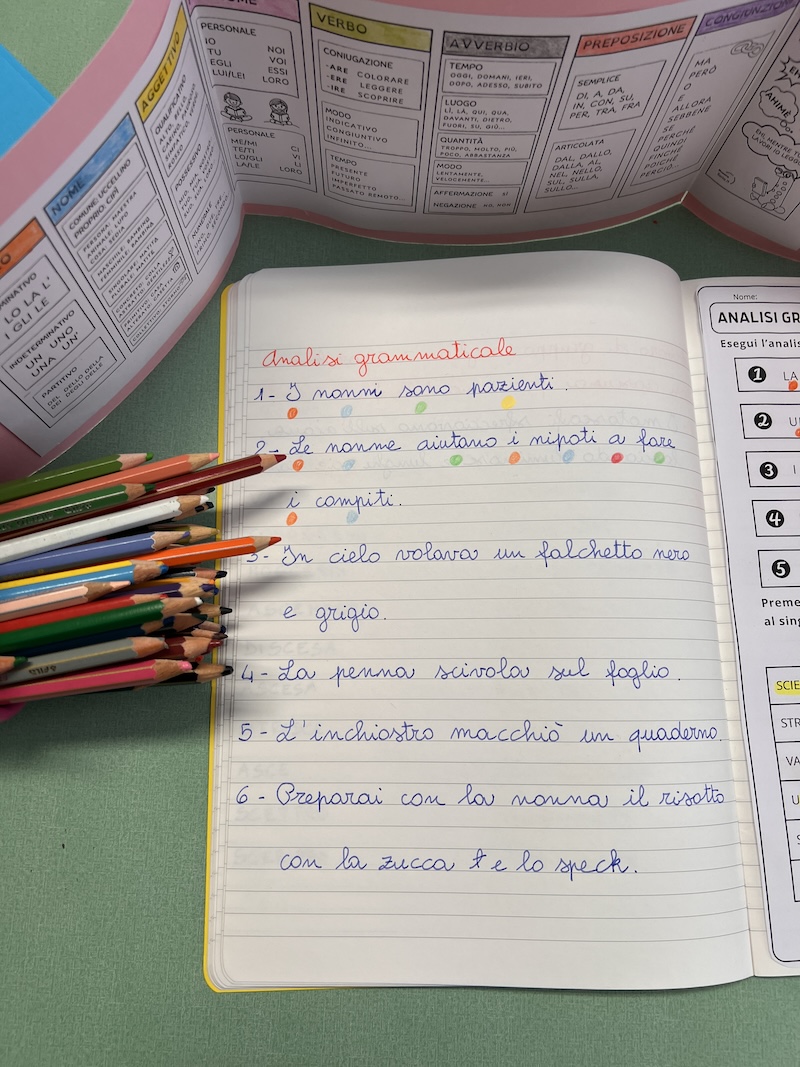 NOME
PERSONALE
IO NOI
TU VOI
EGLI ESSI
LUI/LEI LORO
PERSONALE
ME/MI CI
TE/TI VI
LO/GLI LI
LA/LE LORO
VERBO
CONIUGAZIONE
-ARE COLORARE
-ERE LEGGERE
-IRE SCOPRIRE
MODO
INDICATIVO
CONGIUNTIVO
INFINITO...
TEMPO
PRESENTE
FUTURO
IMPERFETTO
PASSATO REMOTO...
AVVERBIO
TEMPO
OGGI, DOMANI, IERI,
DOPO, ADESSO, SUBITO
LUOGO
LÌ, LÀ, QUI, QUA,
DAVANTI, DIETRO,
FUORI, SU, GIÙ...
QUANTITÀ
TROPPO, MOLTO, PIÙ,
POCO, ABBASTANZA
MODO
LENTAMENTE,
VELOCEMENTE...
AFFERMAZIONE SÌ
NEGAZIONE NO, NON
PREPOSIZIONE
SEMPLICE
DI, A, DA,
IN, CON, SU,
PER, TRA, FRA
ARTICOLATA
DAL, DALLO,
DALLA, AL,
NEL, NELLO,
SUL, SULLA,
SULLO...
CONGIUNZIONE
MA
PERÒ
O
E
ALLORA
SEBBENE
SE
PERCHÉ
QUINDI
FINCHÉ
POICHÉ
PERCIÒ...
AHIMÈ
AGGETTIVO
QUALIFICATIVO
POSSESSIVO
NOME
COMUNE: UCCELLINO
PROPRIO: CIPÌ
PERSONA: MAESTRA
ANIMALE: LUPO
COSA: SEDIA
MASCHILE: BAMBINO
FEMMINILE: BAMBINA
SINGOLARE: MATITA
PLURALE: MATITE
LO LA L'
I GLI LE
INDETERMINATIVO
UN UNO
UNA UN'
PARTITIVO
DEL DELLO DELLA
DEI DEGLI DELLE
Analisi grammaticale
1- I nonni sono pazienti.
2- Le nonne aiutano i nipoti a fare
i compiti.
3- In cielo volava un falchetto nero
e grigio.
4- La penna scivola sul foglio.
5- L'inchiostro macchiò un quaderno.
6- Preparai con la nonna il risotto
con la zucca e lo speck.
Nome:
ANALISI GR
Esegui l'analis
1 LA
2 U
3 I
4
5
Preme
al sing
SCIE
STR
VA
U
S